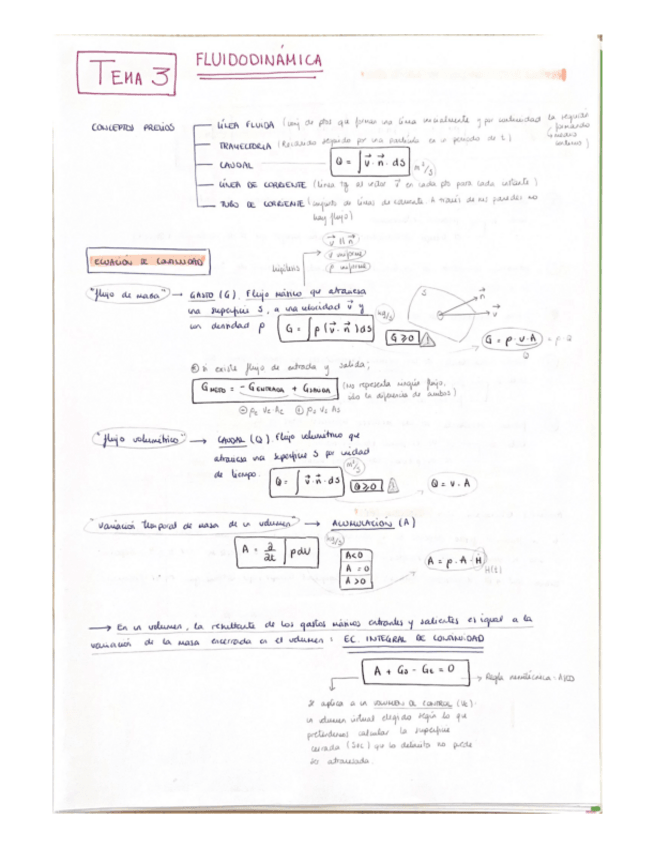 TEMA 3
FLUIDODINÁMICA
CONCEPTOS PREVIOS
LÍNEA FLUIDA (conj de ptos que forman una línea inicialmente y por continuidad la seguirán formando
TRAYECTORIA (Recorrido seguido por una partícula en un período de t)
CAUDAL Q = ∫ v⃗ · n⃗ · dS m³/s
LÍNEA DE CORRIENTE (línea tg al vector v⃗ en cada pto para cada instante)
TUBO DE CORRIENTE (conjunto de líneas de corriente. A través de sus paredes no
hay flujo)
ECUACIÓN DE CONTINUIDAD
hipótesis
v⃗ || n⃗
v uniforme
ρ uniforme
"flujo de masa" → GASTO (G). Flujo másico que atraviesa
una superficie S, a una velocidad v⃗ y
un densidad ρ G = ∫ρ(v⃗·n⃗)dS kg/s G≥0
S n⃗ v⃗
G = ρ·v·A = ρ·Q
Q
si existe flujo de entrada y salida;
GNETO = -GENTRADA + GSALIDA (no representa ningún flujo,
sólo la diferencia de ambos)
"flujo volumétrico" → CAUDAL (Q). Flujo volumétrico que
atraviesa una superficie S por unidad
de tiempo. m³/s
Q = ∫ v⃗·n⃗·dS Q≥0 Q = v·A
"variación temporal de masa de un volumen" → ACUMULACIÓN (A)
A = ∂/∂t ∫ρdV kg/s
A<0
A = 0
A>0
A = ρ·A·Ḣ
H(t)
→ En un volumen, la resultante de los gastos másicos entrantes y salientes es igual a la
variación de la masa encerrada en el volumen: EC. INTEGRAL DE CONTINUIDAD
A + Gs - Ge = 0 → Regla nemotécnica: ASCO
Se aplica a un VOLUMEN DE CONTROL (Vc):
un volumen virtual elegido según lo que
pretendemos calcular. la superficie
cerrada (Svc) que lo delimita no puede
ser atravesada.